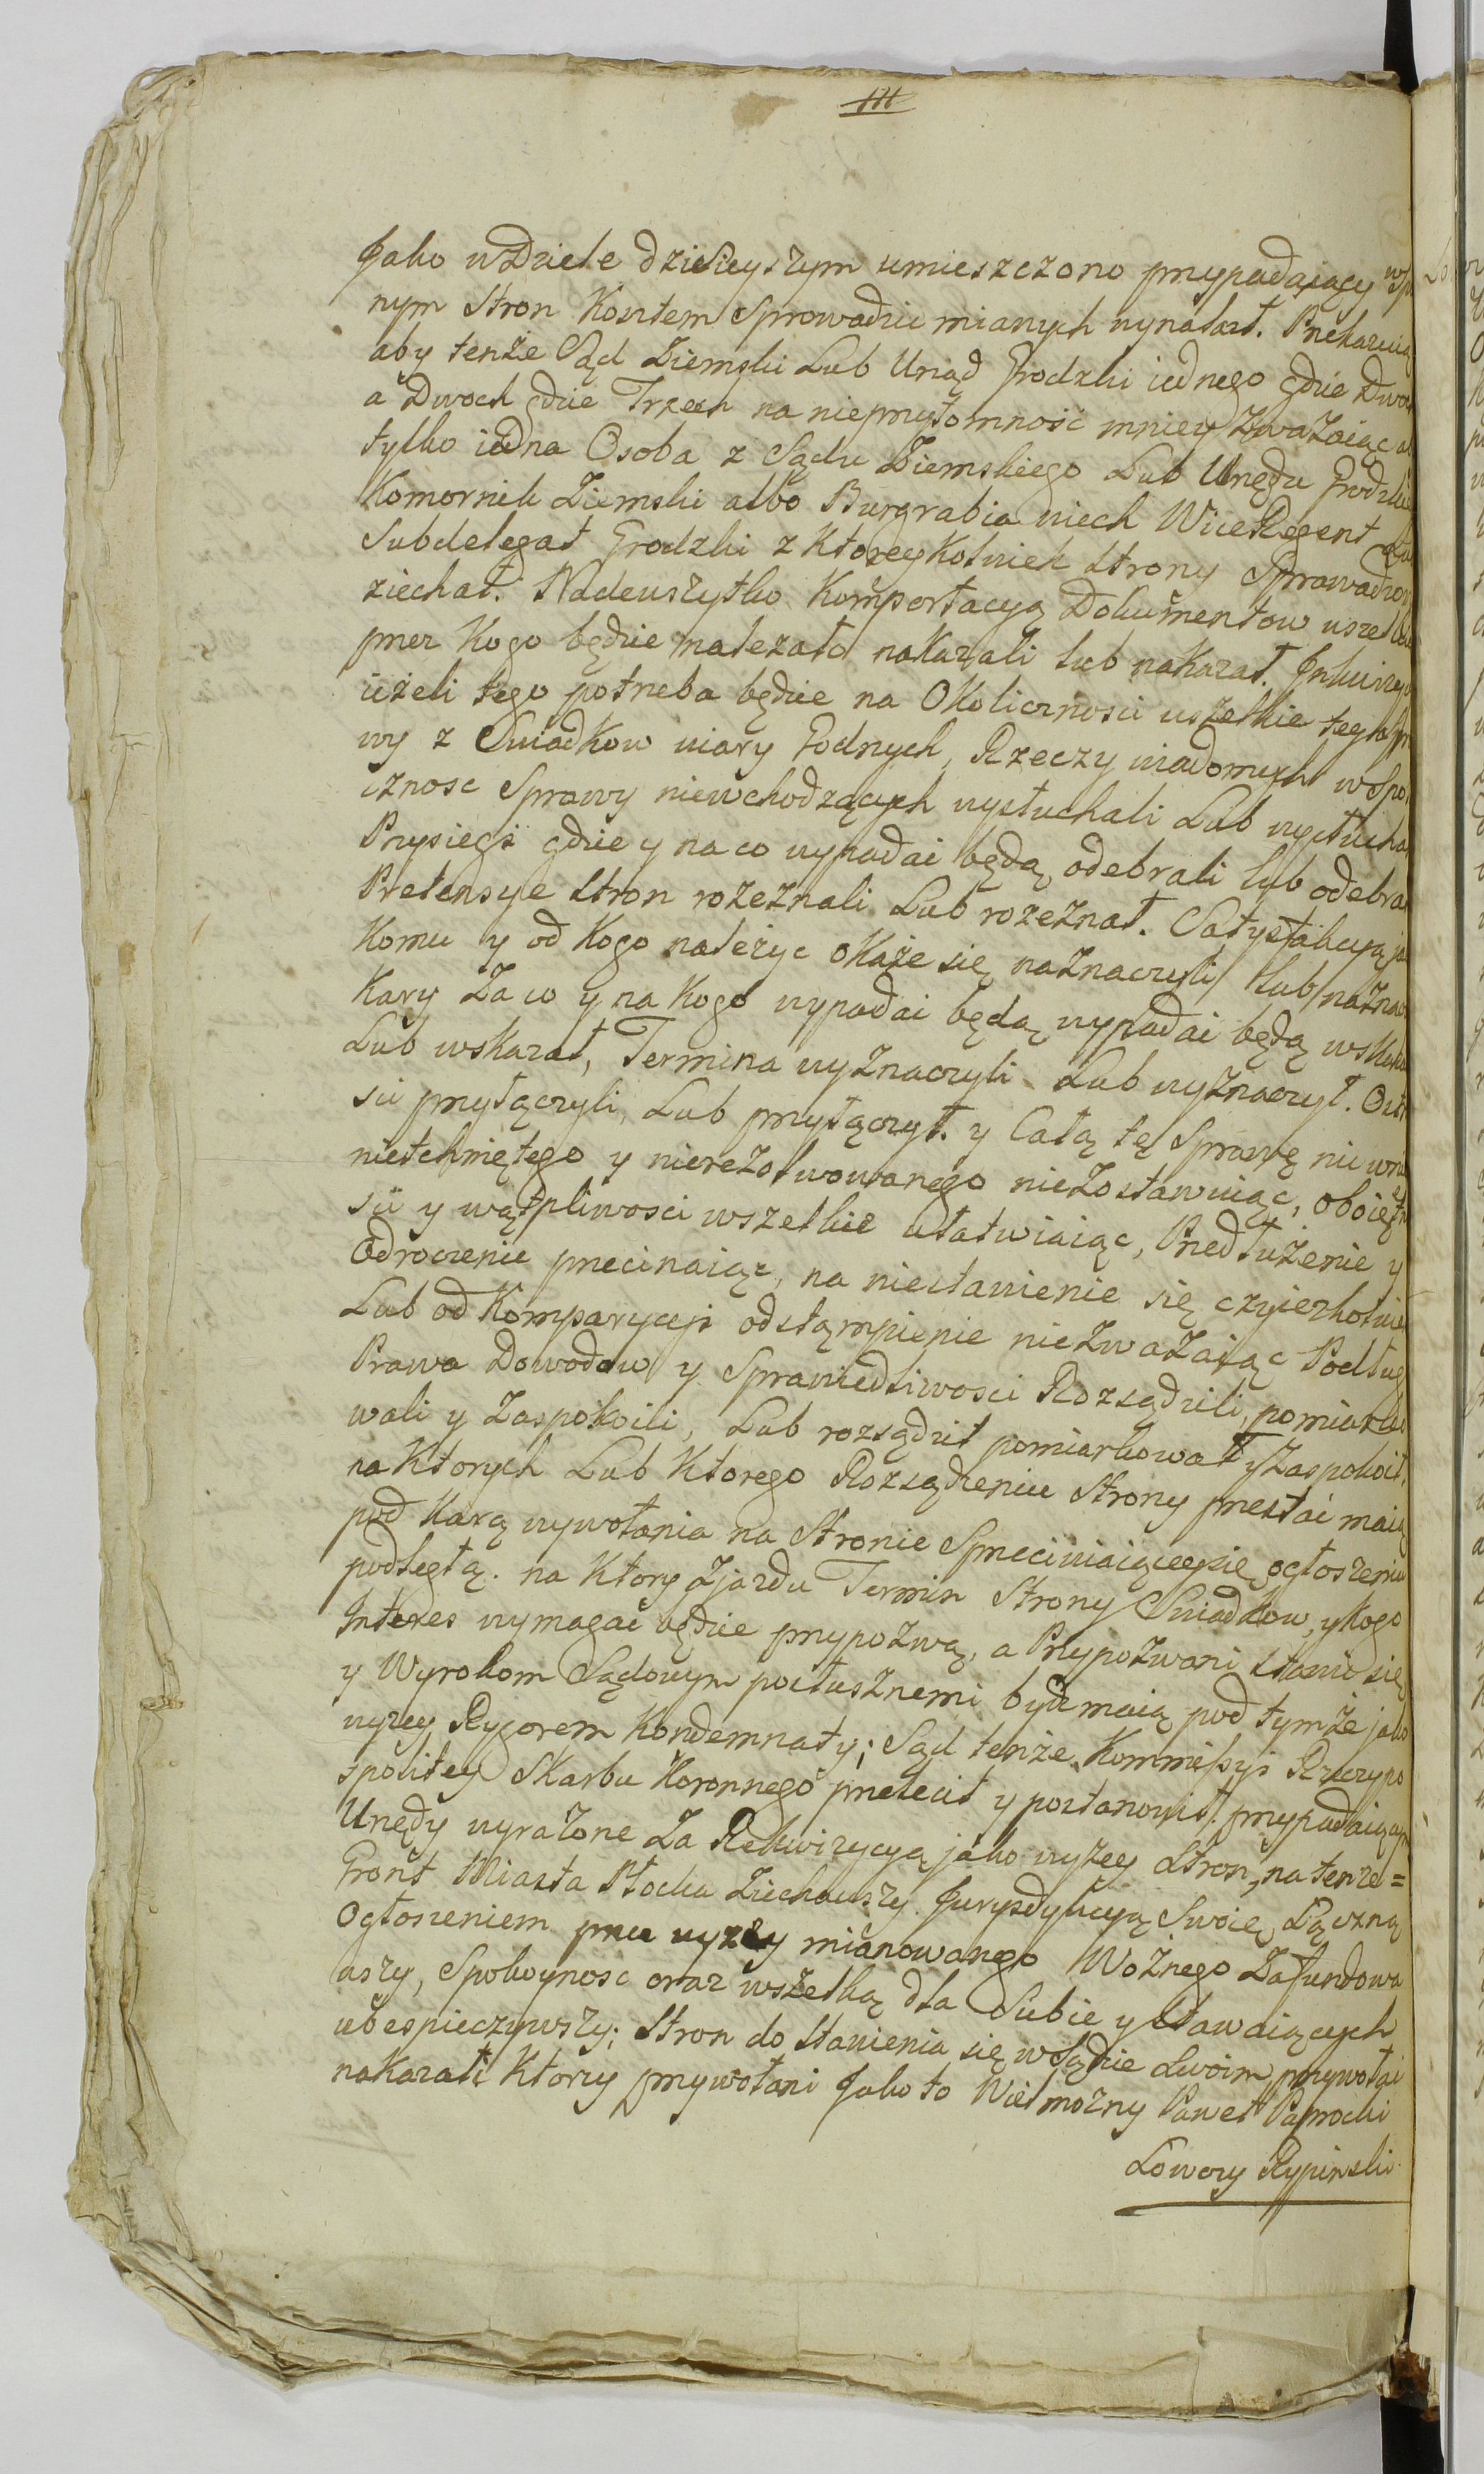 Jako w Dziele dzisieyszym umieszczono przypadaiący wsp
nym Stron Kosztem Sprowadzić mianych wynalazł. Przekazuią
aby tenże Sąd Ziemski Lub Urząd Grodzki iednego gdzie Dwoch
a Dwoch gdzie Trzech na nieprzytomność mniey zważaiąc a
tylko iedna Osoba z Sądu Ziemskiego Lub Urzędu Grodzkie
Komornik Ziemski albo Burgrabia niech WiceRegent Lu
Subdelegat Grodzki z Ktoreykolwiek Strony Sprowadzon
ziechał. Nadewszytko Komportacyą Dokumentow wszelkich
przez Kogo będzie należało nakazali lub nakazał. Inkwizycye
ieżeli tego potrzeba będzie na Okoliczności wszelkie tey Spr
wy z Swiadkow wiary Godnych, Rzeczy wiadomych wspo
iżnosc Sprawy niewchodzących wysłuchali Lub wysłucha
Przysięgi gdzie y na co wypadać będą odebrali lub odebra
Pretensye Stron rozeznali Lub rozeznał. Satysfakcyą ja
Komu y od Kogo należyc okaże się naznaczyli lub naznac
Kary Za co y na Kogo wypadać będą wypadać będą wskaza
Lub wskazał, Termina wyznaczyli Lub wyznaczył. Oct
sić przyłączyli, Lub przyłączył. y Całą tę Sprawę nic w niey
nietchniętego y nierezolwowanego niezostawuiąc, oboiętno
sći y wątpliwosci wszelkie ułatwiaiąc, Przedłużenie y
Odroczenie przecinaiąc, na niestawienie się czyieżkolwiek
Lub od Komparycyi odstąmpienie niezważaiąc Podług
Prawa Dowodow y Sprawiedliwosci Rozsądzili, pomiarko
wali y Zaspokoili, Lub rozsądził pomiarkował y Zaspokoił.
na Ktorych Lub Ktorego Rozsądzeniu Strony przestać maią
pod Karą wywołania na Stronie Sprzeciwiaiąceysię ogłoszeniu
podległą. na Ktory Zjazdu Termin Strony Swiadkow, y kogo
Interes wymagać będzie przypozwą, a Przypozwani stawić się
y Wyrokom Sądowym posłusznemi bydz maią pod tymże jako
wyzey Rygorem Kondemnaty; Sąd tenże Kommissyi Rzeczypo
spolitey Skarbu Koronnego przelecił y postanowił. przypadaiącym
Urzędy wyrażone Za Rekwizycyą jako wyżey Stron, na tenże=
Gront Miasta Płocka Ziechawszy. Jurysdykcyą Swoię Łączną
Ogłoszeniem przez wyzey mianowanego Woźnego Zafundowa
wszy, Spokoynosc oraz wszelką dla Siebie y Stawaiących
ubespieczywszy; Stron do Stawienia się w Sądzie Swoim przywołać
nakazali Ktorzy przywołani Jako to Wielmożny Paweł Paprocki
Łowczy Rypinski